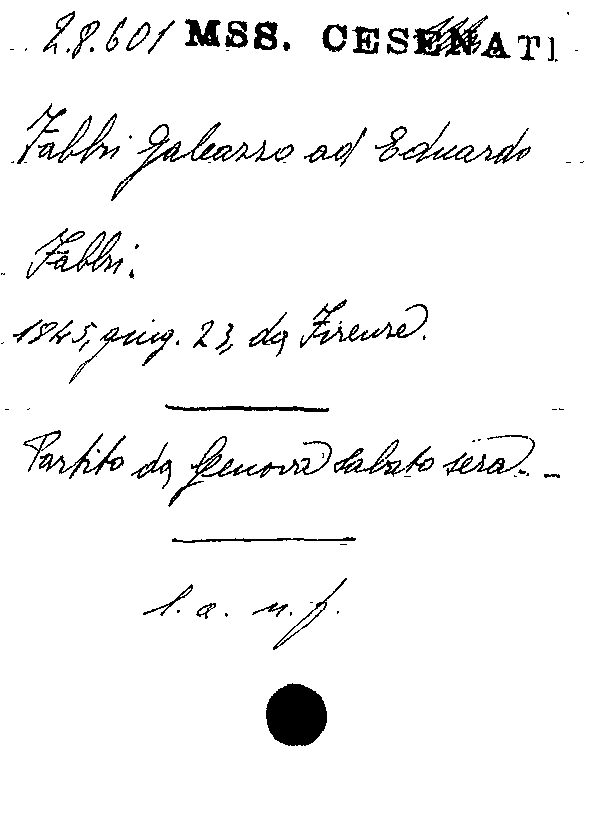 28.601 MSS. CESENATI
Fabbri Galeazzo ad Eduardo
Fabbri.
1845, giug. 23, da Firenze.
Partito da Genova sabato sera...
l. a. n. f.